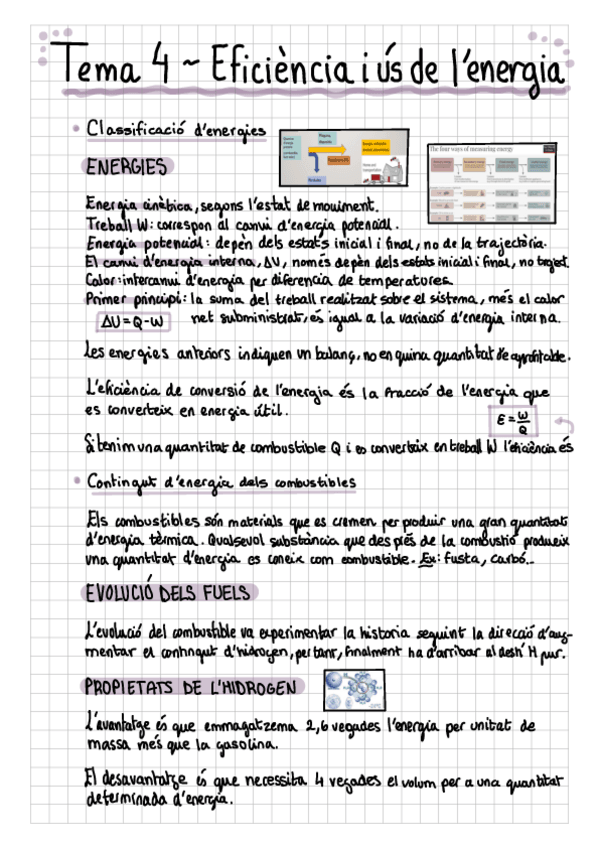 Tema 4 ~ Eficiència i ús de l'energia
Classificació d'energies
The four ways of measuring energy
ENERGIES
Energia cinètica, segons l'estat de moviment.
Treball W: correspon al canvi d'energia potencial.
Energia potencial: depèn dels estats inicial i final, no de la trajectòria.
El canvi d'energia interna, ΔU, només depèn dels estats inicial i final, no traject.
Calor: intercanvi d'energia per diferencia de temperatures.
Primer principi: la suma del treball realitzat sobre el sistema, més el calor
ΔU = Q - W
net subministrat, és igual a la variació d'energia interna.
Les energies anteriors indiquen un balanç, no en quina quantitat és aprofitable.
L'eficiència de conversió de l'energia és la fracció de l'energia que
es converteix en energia útil.
E = W/Q
Si tenim una quantitat de combustible Q i es converteix en treball W l'eficiència és
Contingut d'energia dels combustibles
Els combustibles són materials que es cremen per produir una gran quantitat
d'energia tèrmica. Qualsevol substància que després de la combustió produeix
una quantitat d'energia es coneix com combustible. Ex: fusta, carbó...
EVOLUCIÓ DELS FUELS
L'evolució del combustible va experimentar la historia seguint la direcció d'aug-
mentar el contingut d'hidrogen, per tant, finalment ha d'arribar al desti H pur.
PROPIETATS DE L'HIDROGEN
L'avantatge és que emmagatzema 2,6 vegades l'energia per unitat de
massa més que la gasolina.
El desavantatge és que necessita 4 vegades el volum per a una quantitat
determinada d'energia.